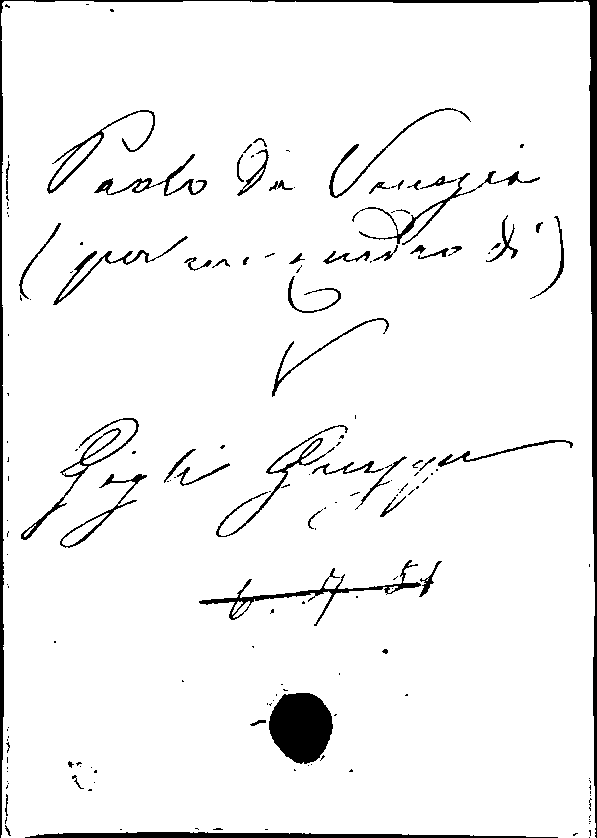 Paolo da Venezia
(per un quadro di)
V
Gigli Giuseppe
6. 17. 51